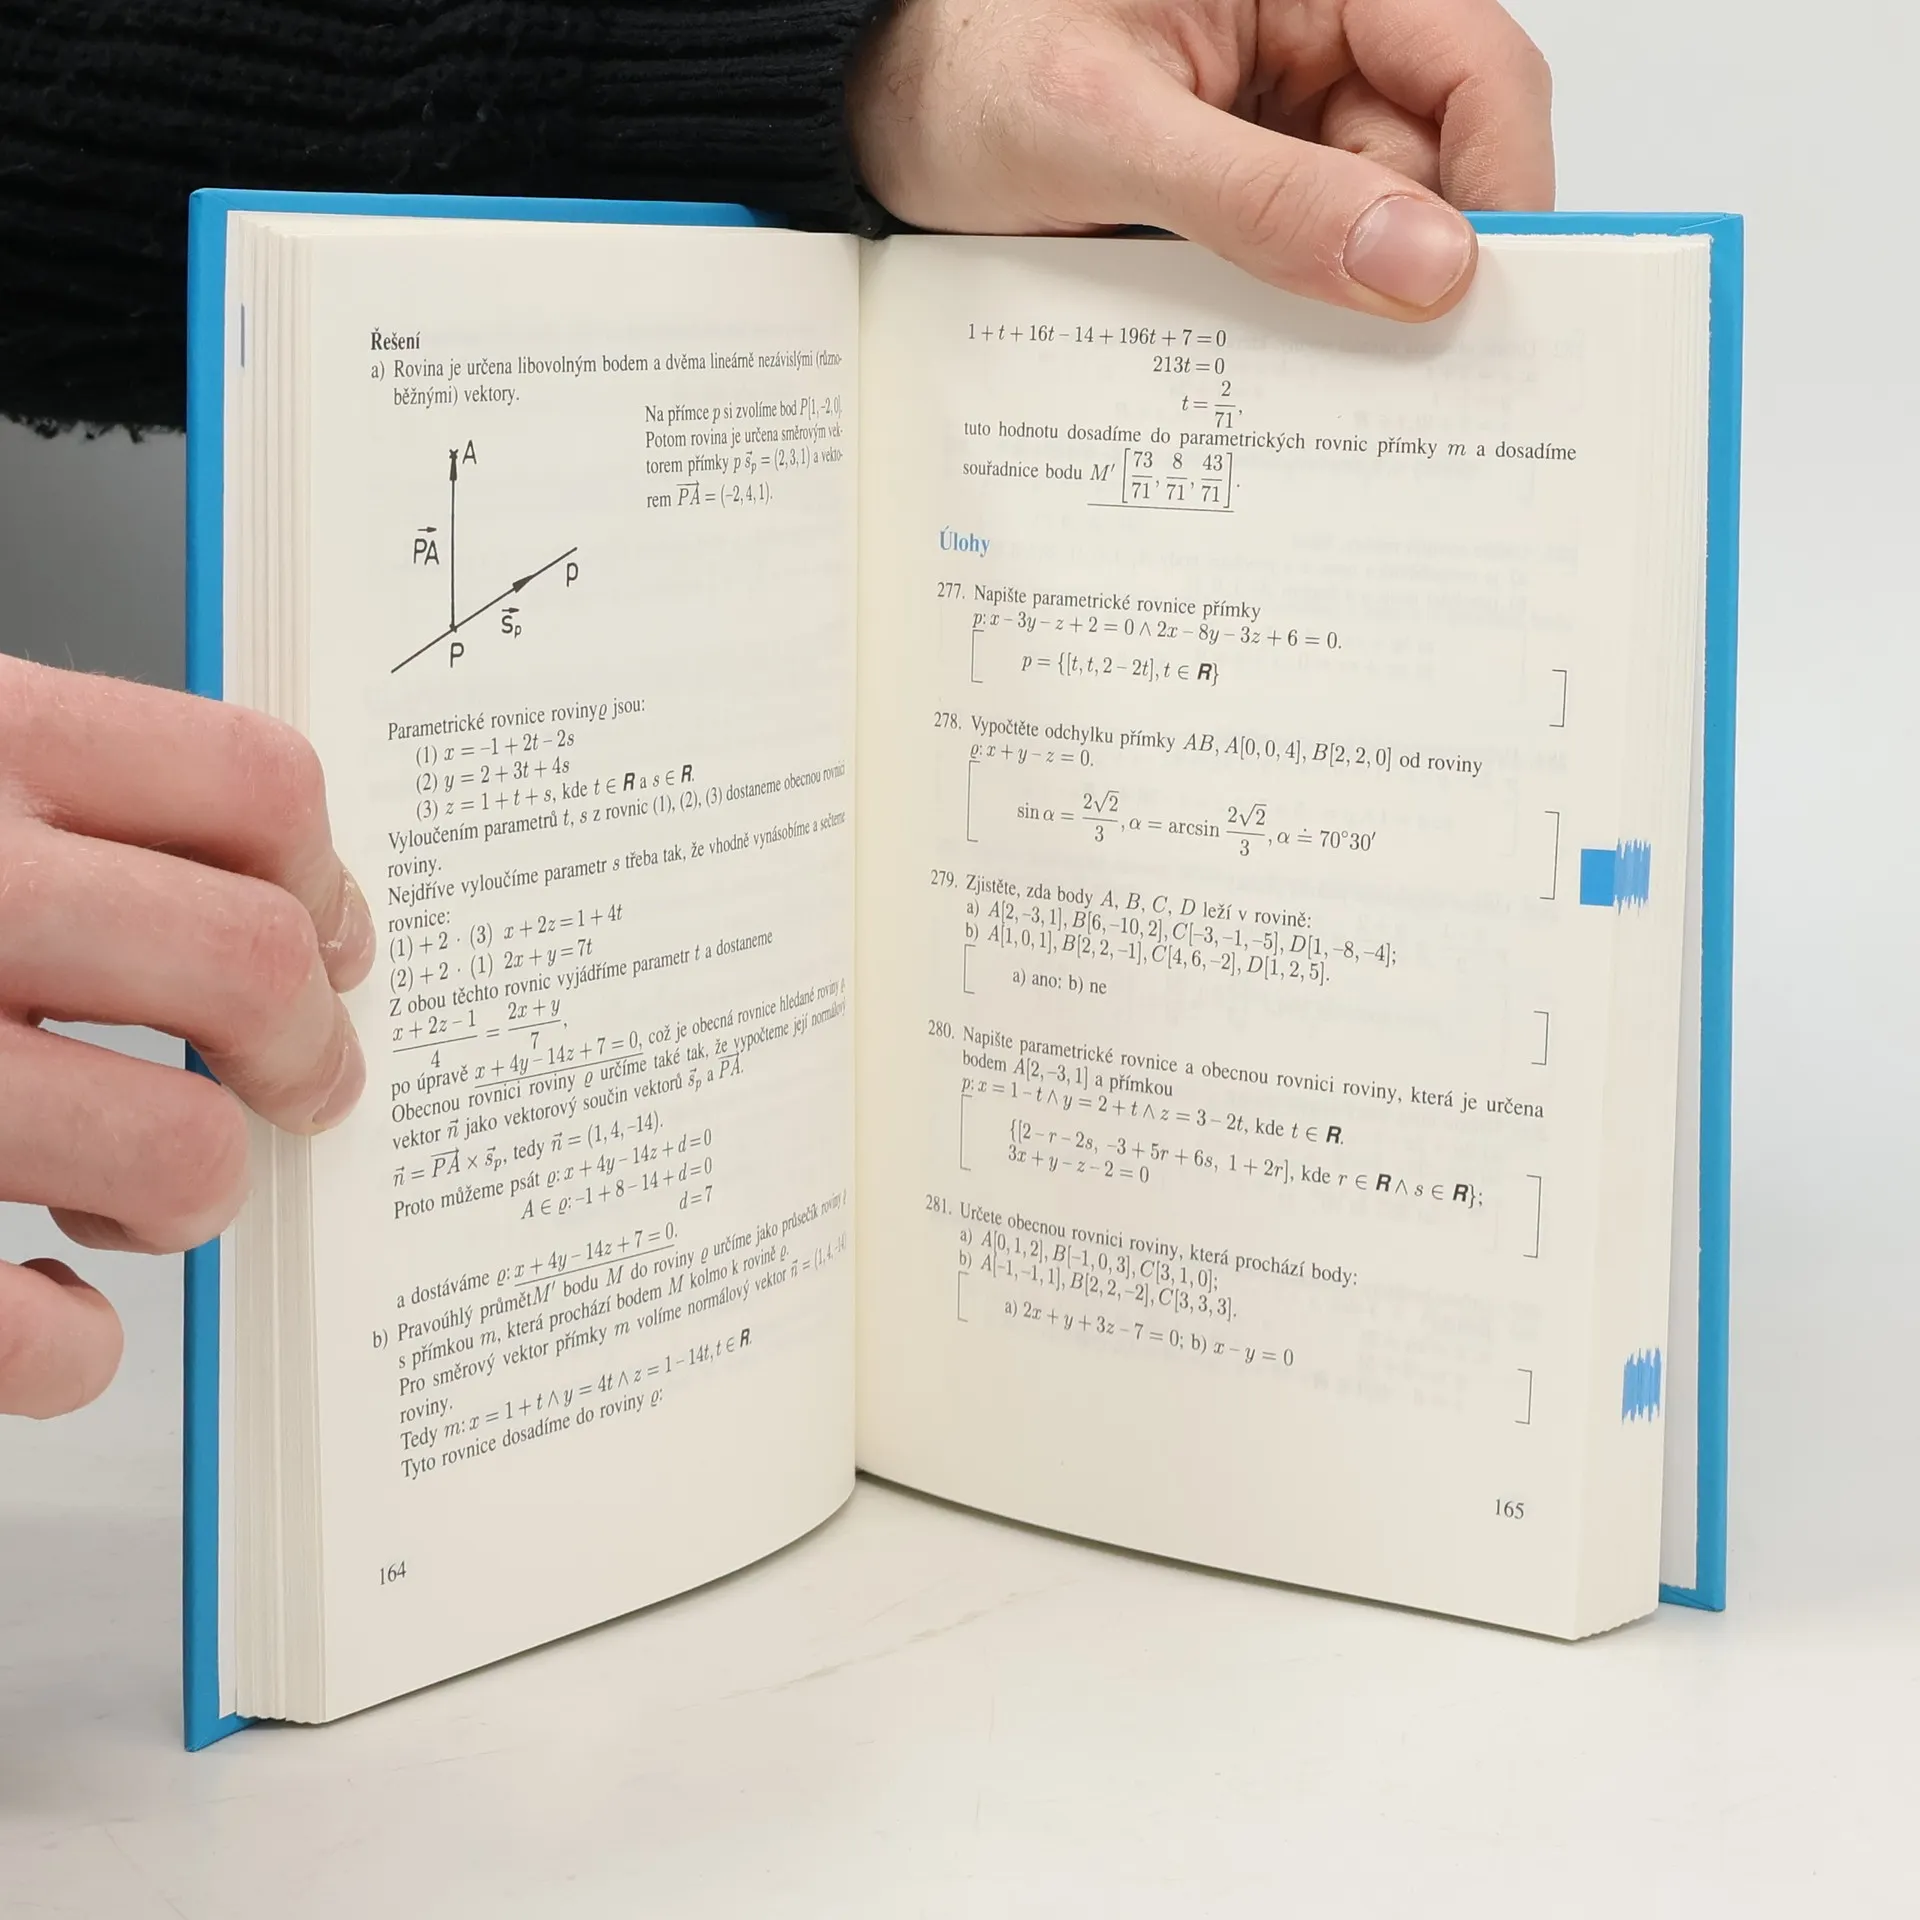 Řešení
a) Rovina je určena libovolným bodem a dvěma lineárně nezávislými (různo-
běžnými) vektory.
Na přímce p si zvolíme bod P[1, -2, 0].
Potom rovina je určena směrovým vek-
torem přímky p s⃗ₚ = (2, 3, 1) a vekto-
rem P͞A⃗ = (-2, 4, 1).
A
PA
p
s⃗ₚ
P
Parametrické rovnice roviny ϱ jsou:
(1) x = -1 + 2t - 2s
(2) y = 2 + 3t + 4s
(3) z = 1 + t + s, kde t ∈ R a s ∈ R.
Vyloučením parametrů t, s z rovnic (1), (2), (3) dostaneme obecnou rovnici
roviny.
Nejdříve vyloučíme parametr s třeba tak, že vhodně vynásobíme a sečteme
rovnice:
(1) + 2 · (3) x + 2z = 1 + 4t
(2) + 2 · (1) 2x + y = 7t
Z obou těchto rovnic vyjádříme parametr t a dostaneme
(x + 2z - 1)/4 = (2x + y)/7,
po úpravě x + 4y - 14z + 7 = 0, což je obecná rovnice hledané roviny ϱ.
Obecnou rovnici roviny ϱ určíme také tak, že vypočteme její normálový
vektor n⃗ jako vektorový součin vektorů s⃗ₚ a PA⃗.
n⃗ = PA⃗ × s⃗ₚ, tedy n⃗ = (1, 4, -14).
Proto můžeme psát ϱ: x + 4y - 14z + d = 0
A ∈ ϱ: -1 + 8 - 14 + d = 0
d = 7
a dostáváme ϱ: x + 4y - 14z + 7 = 0.
b) Pravoúhlý průmět M′ bodu M do roviny ϱ určíme jako průsečík roviny ϱ
s přímkou m, která prochází bodem M kolmo k rovině ϱ.
Pro směrový vektor přímky m volíme normálový vektor n⃗ = (1, 4, -14)
roviny.
Tedy m: x = 1 + t ∧ y = 4t ∧ z = 1 - 14t, t ∈ R.
Tyto rovnice dosadíme do roviny ϱ:
164
1 + t + 16t - 14 + 196t + 7 = 0
213t = 0
t = 2/71,
tuto hodnotu dosadíme do parametrických rovnic přímky m a dosadíme
souřadnice bodu M′ [73/71, 8/71, 43/71].
Úlohy
277. Napište parametrické rovnice přímky
p: x - 3y - z + 2 = 0 ∧ 2x - 8y - 3z + 6 = 0.
[ p = {[t, t, 2 - 2t], t ∈ R} ]
278. Vypočtěte odchylku přímky AB, A[0, 0, 4], B[2, 2, 0] od roviny
ϱ: x + y - z = 0.
[ sin α = 2√2/3, α = arcsin 2√2/3, α ≐ 70°30′ ]
279. Zjistěte, zda body A, B, C, D leží v rovině:
a) A[2, -3, 1], B[6, -10, 2], C[-3, -1, -5], D[1, -8, -4];
b) A[1, 0, 1], B[2, 2, -1], C[4, 6, -2], D[1, 2, 5].
[ a) ano: b) ne ]
280. Napište parametrické rovnice a obecnou rovnici roviny, která je určena
bodem A[2, -3, 1] a přímkou
p: x = 1 - t ∧ y = 2 + t ∧ z = 3 - 2t, kde t ∈ R.
[ {[2 - r - 2s, -3 + 5r + 6s, 1 + 2r], kde r ∈ R ∧ s ∈ R};
3x + y - z - 2 = 0 ]
281. Určete obecnou rovnici roviny, která prochází body:
a) A[0, 1, 2], B[-1, 0, 3], C[3, 1, 0];
b) A[-1, -1, 1], B[2, 2, -2], C[3, 3, 3].
[ a) 2x + y + 3z - 7 = 0; b) x - y = 0 ]
165